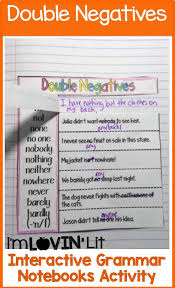 Double Negatives
Double Negatives
I have nothing but the clothes on
my back.
not
no
none
no one
nobody
nothing
neither
nowhere
never
barely
hardly
(-n't)
anybody
Julia didn't want nobody to see her.
any
I never see no fruit on sale in this store.
My jacket isn't nowhere!
any
We barely got no sleep last night.
The dog never fights with of the
cats.
Jason didn't tell no one his idea.
I'm LOVIN' Lit
Interactive Grammar
Notebooks Activity